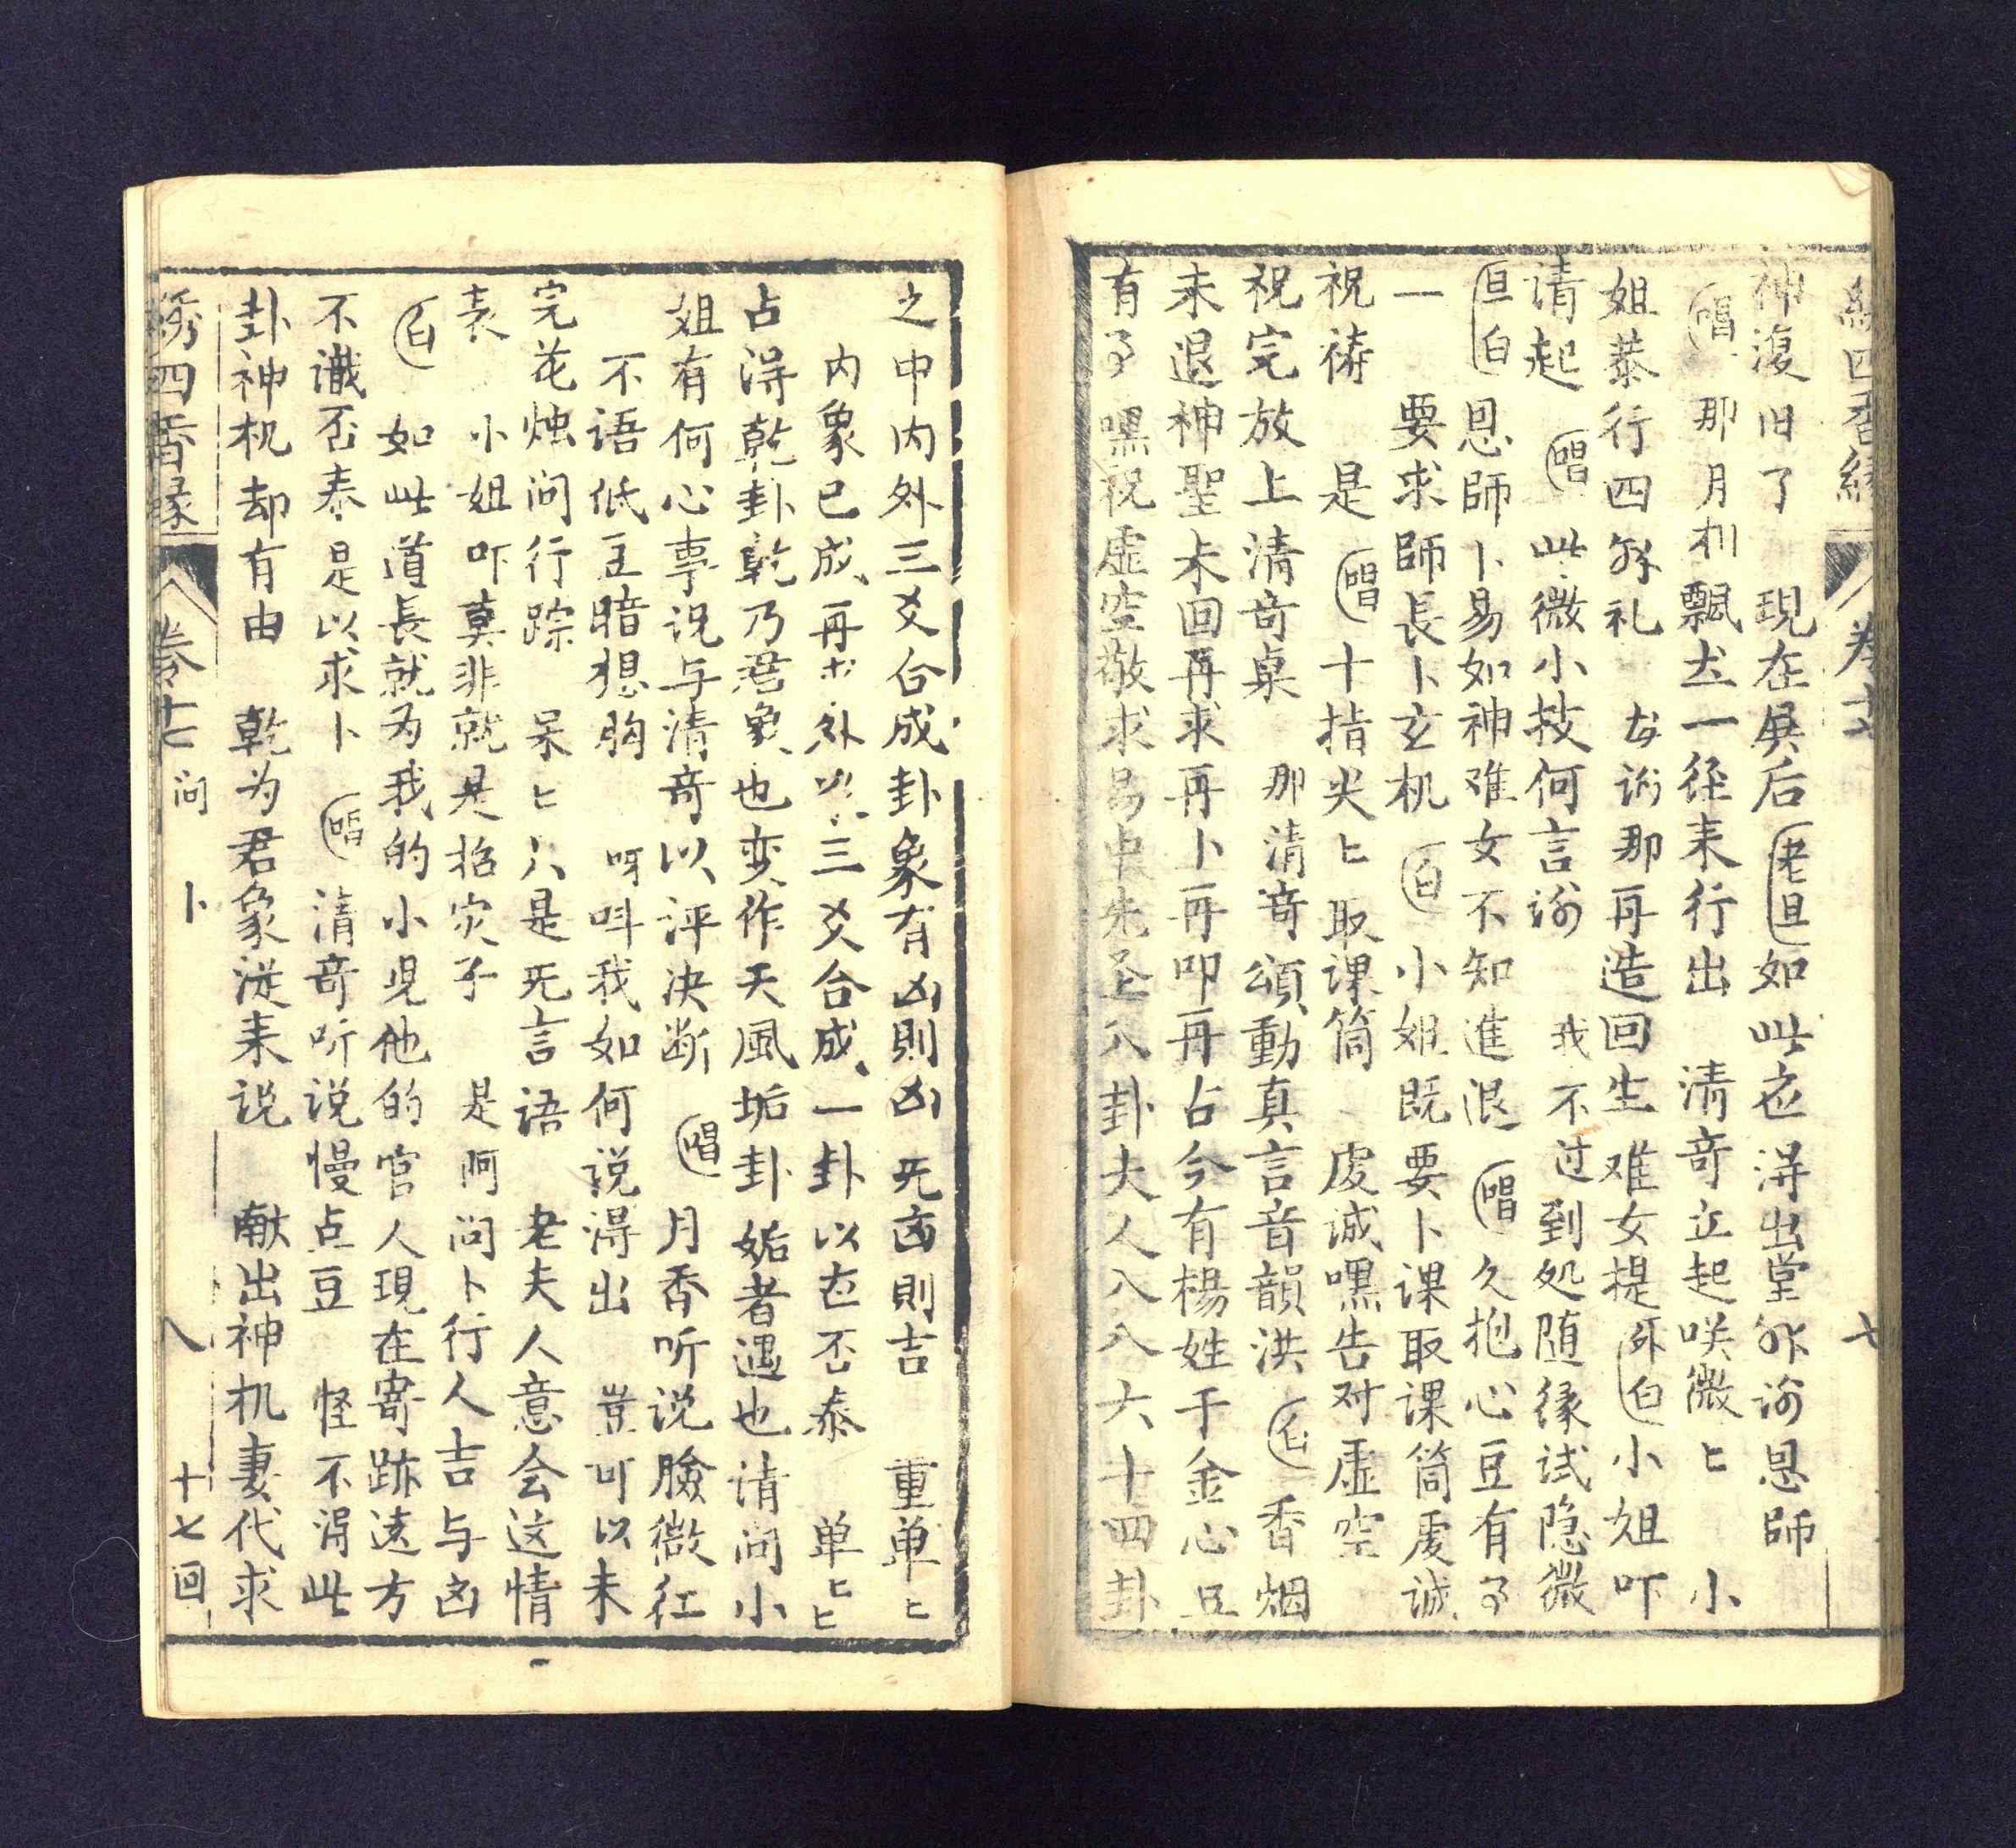 四香緣 卷十七 七
神復旧了 現在屏后 老旦 如此立 淂出堂外谕恩師
唱 那月香飄去一徑来行出 清奇立起咲微匕 小
姐恭行四拜礼 告谢那再造回生难女提 外白 小姐吓
请起 唱 此微小技何言谕 我不过到处随缘试隐微
旦白 恩師卜易如神难女不知進退 唱 久抱心豆有事
一 要求師長卜玄机 白 小姐既要卜课取课筒虔诚
祝祷 是 唱 十指尖匕取课筒 虔诚嘿告对虚空
祝完放上清奇桌 那清奇頌動真言音韻洪 白 香烟
未退神聖未回再求再卜再叩再占今有楊姓千金心豆
有事嘿祝虚空敬求易中先圣八卦大人八八六十四卦
之中内外三爻合成卦象有凶則凶旡凶則吉 重单匕
内象已成再求外象三爻合成一卦以去否泰 单匕匕
占淂乾卦乾乃君象也变作天風垢卦姤者遇也请问小
姐有何心事说与清奇以评决断 唱 月香听说臉微红
不语低豆暗想胸 呀呌我如何说淂出 豈可以未
完花烛问行踪 呆匕只是旡言语 老夫人意会这情
衷 小姐吓莫非就是招灾子 是阿问卜行人吉与凶
白 如此道長就为我的小児他的官人現在寄跡远方
不識否泰是以求卜 唱 清奇听说慢点豆 怪不淂此
卦神机却有由 乾为君象従来说 献出神机妻代求
綉四香緣 卷十七 问卜 八 十七回